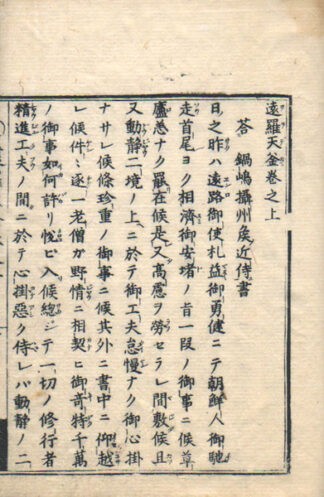 遠羅天釜巻之上
答 鍋嶋攝州矦近侍書
日之昨ハ遠路御使札益御勇健ニテ朝鮮人御馳
走首尾ヨク相濟御安堵ノ旨一段ノ御事ニ候草
廬恙ナク罷在候是又高慮ヲ勞セラレ間敷候且
又動靜二境ノ上ニ於テ御工夫怠慢ナク御心掛
ナサレ候條珍重ノ御事ニ候其外ニ書中ニ仰越
レ候件〻逐一老僧ガ野情ニ相契ヒ御奇特千萬
ノ御事如何許リ悦ビ入候總ジテ一切ノ修行者
精進工夫ノ間ニ於テ心掛惡ク侍レバ動靜ノ二